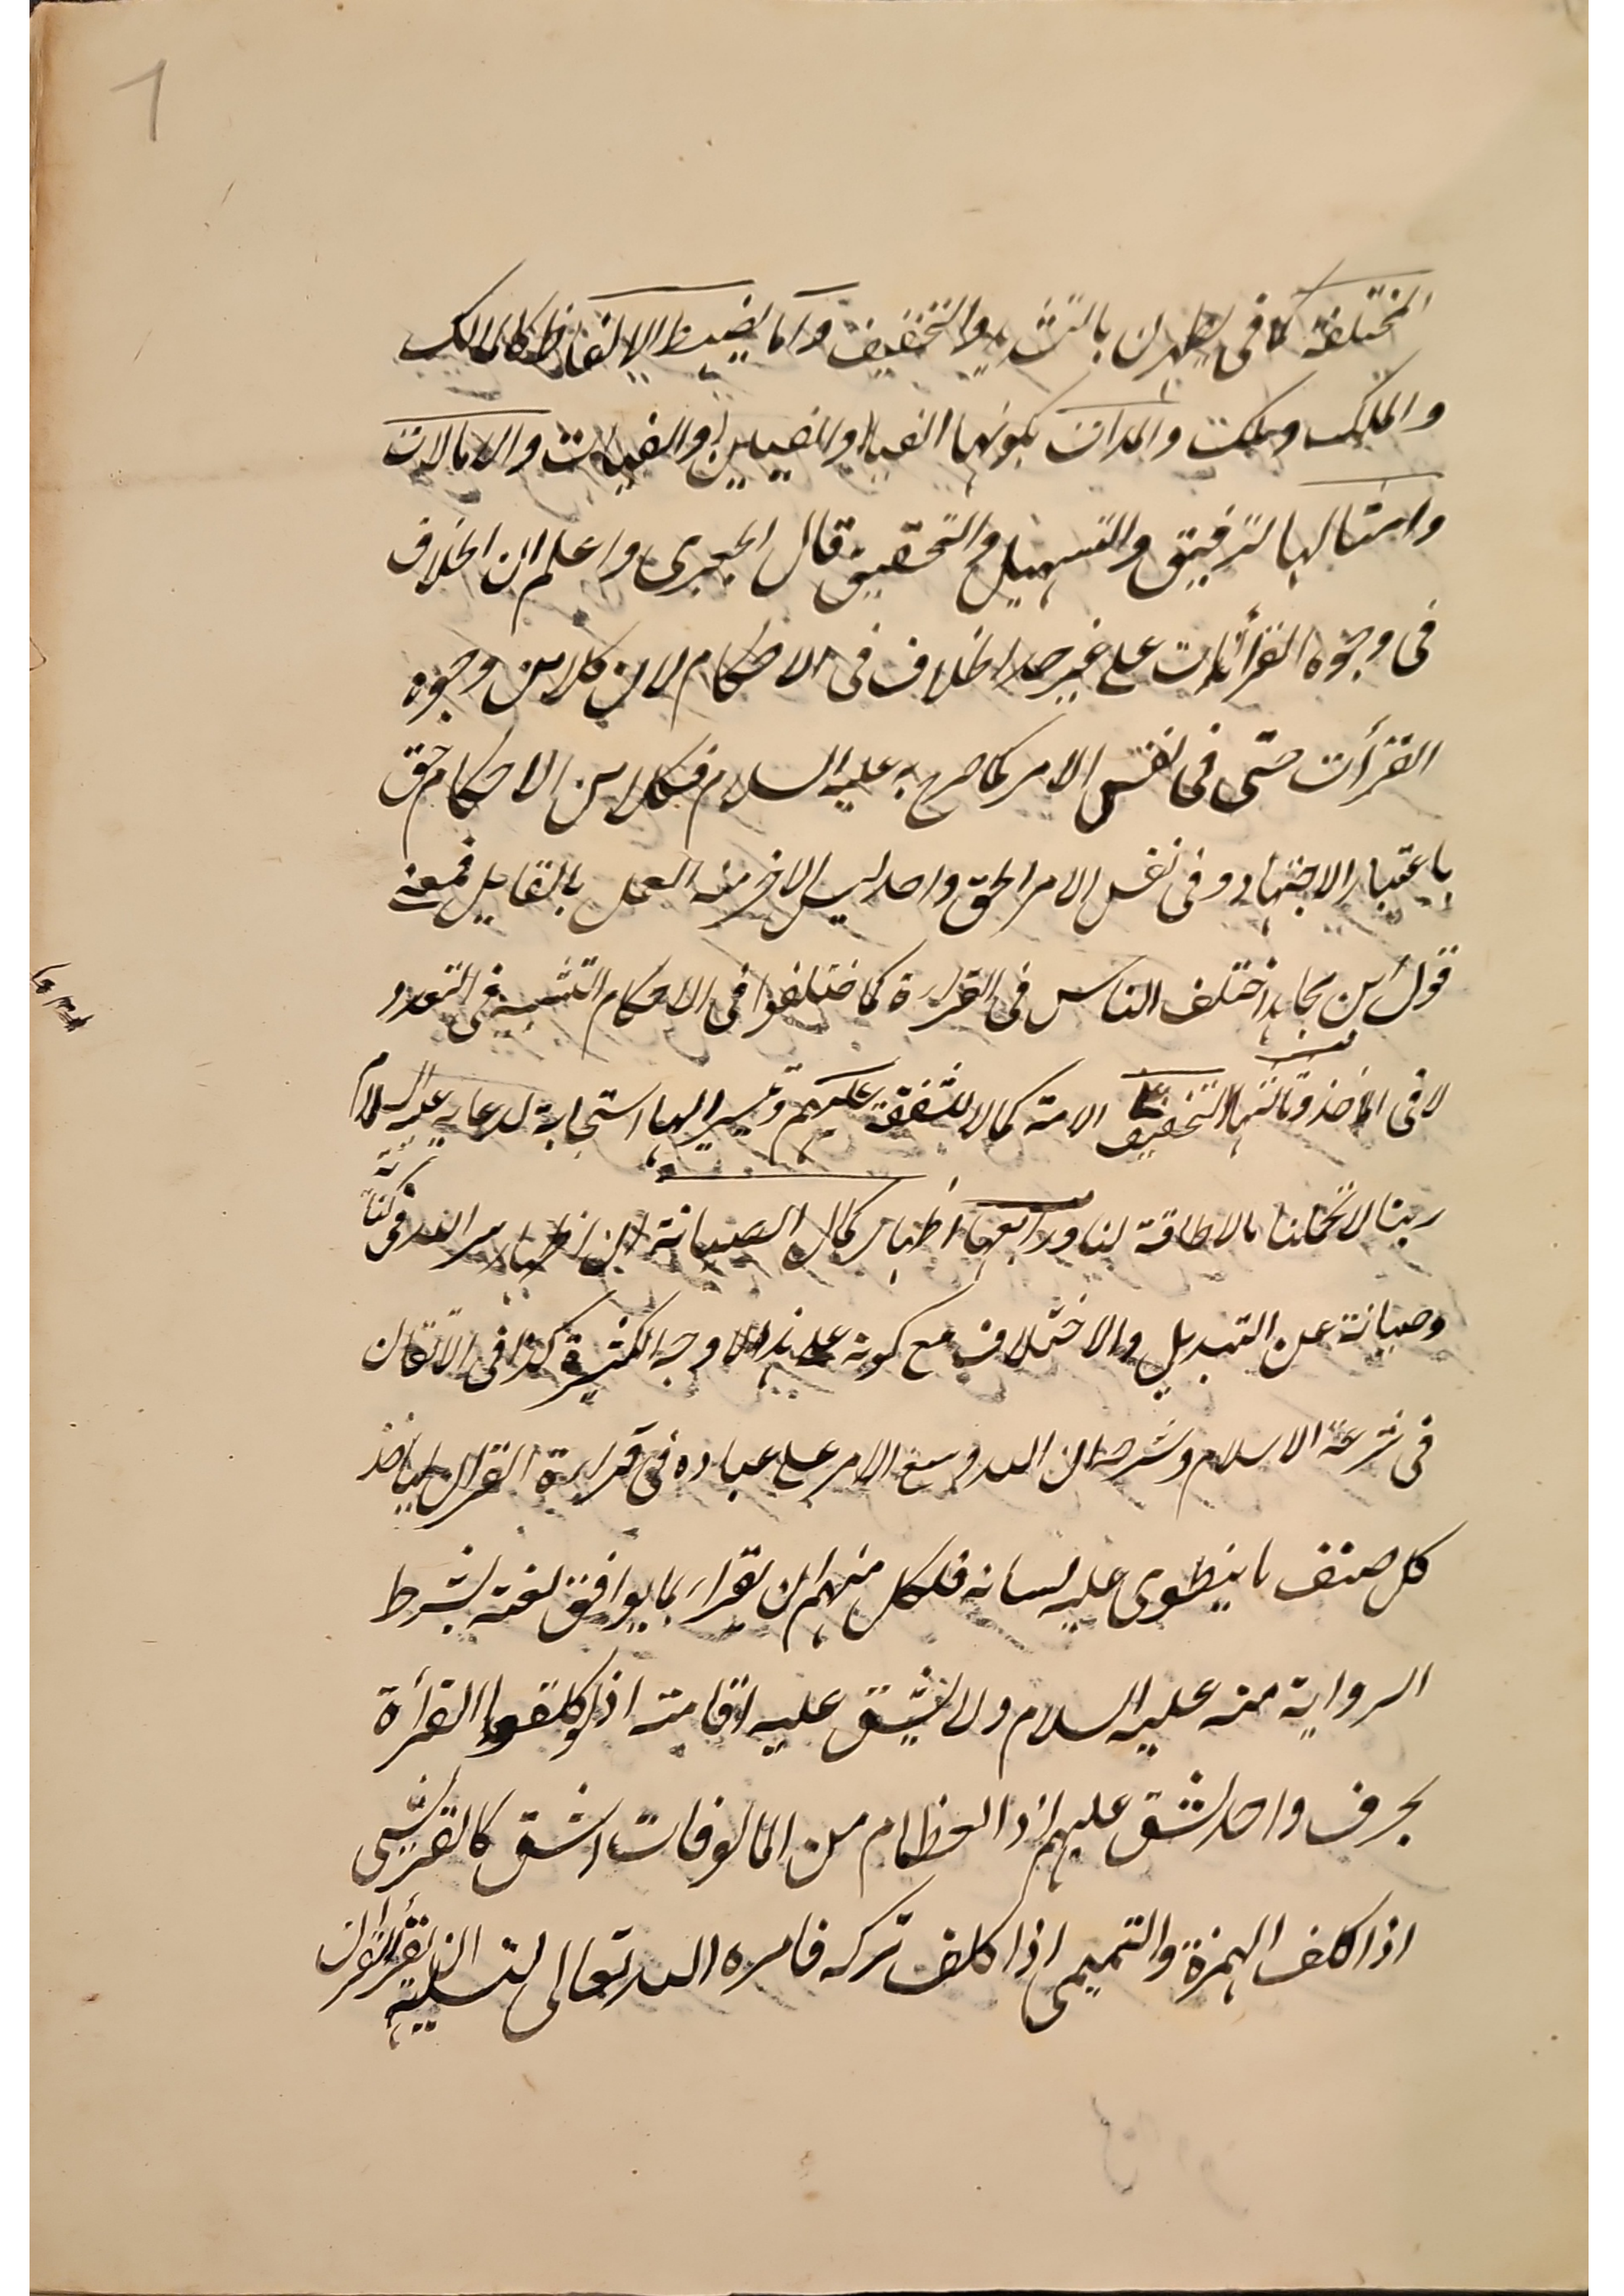 المختلفة كما فى يطهرن بالتشديد والتخفيف واما بضبط الالفاظ كالمالك
والملك وملكت والمدات بكونها الفيا والفيين والفيات والامالات
وامثالها الترقيق والتسهيل والتحقيق قال الجعبرى واعلم ان الخلاف
فى وجوه القرأات على غير حد الخلاف فى الاحكام لان كلا من وجوه
القرأت حتى فى نفس الامر كما صرح به عليه السلام فكلا من الاحكام حق
باعتبار الاجتهاد وفى نفس الامر الحق واحد ليس الاخر منه العمل بالمقابل فمعنى
قول ابن مجاهد اختلف الناس فى القراءة كما ختلفوا فى الاحكام التشبيه فى التعدد
لا فى الماخذ وثالثها التخفيف على الامة كمالا للشفقة عليهم وتيسيرا لها استجابة لدعايه عليه السلام
ربنا لا تحملنا مالا طاقة لنا ورابعها اظهار كمال الصيانة اى اظهار سر الله فى كتابه
وصيانة عن التبديل والاختلاف مع كونه على هذه الاوجه الكثيرة كذا فى الاتقان
فى شرعة الاسلام وشرحه ان الله وسع الامر على عباده فى قراءة القرآن لياخذ
كل صنف ما ينطوى عليه لسانه فلكل منهم ان يقرا بما يوافق لغته بشرط
الرواية منه عليه السلام ولا يشق عليه اقامته اذ لو كلفوا القرأة
بحرف واحد لشق عليهم اذ العظام من المالوفات اشق كالقرشى
اذا كلف الهمزة والتميمى اذا كلف تركه فامره الله تعالى لتسليه ان يقرأ القرآن